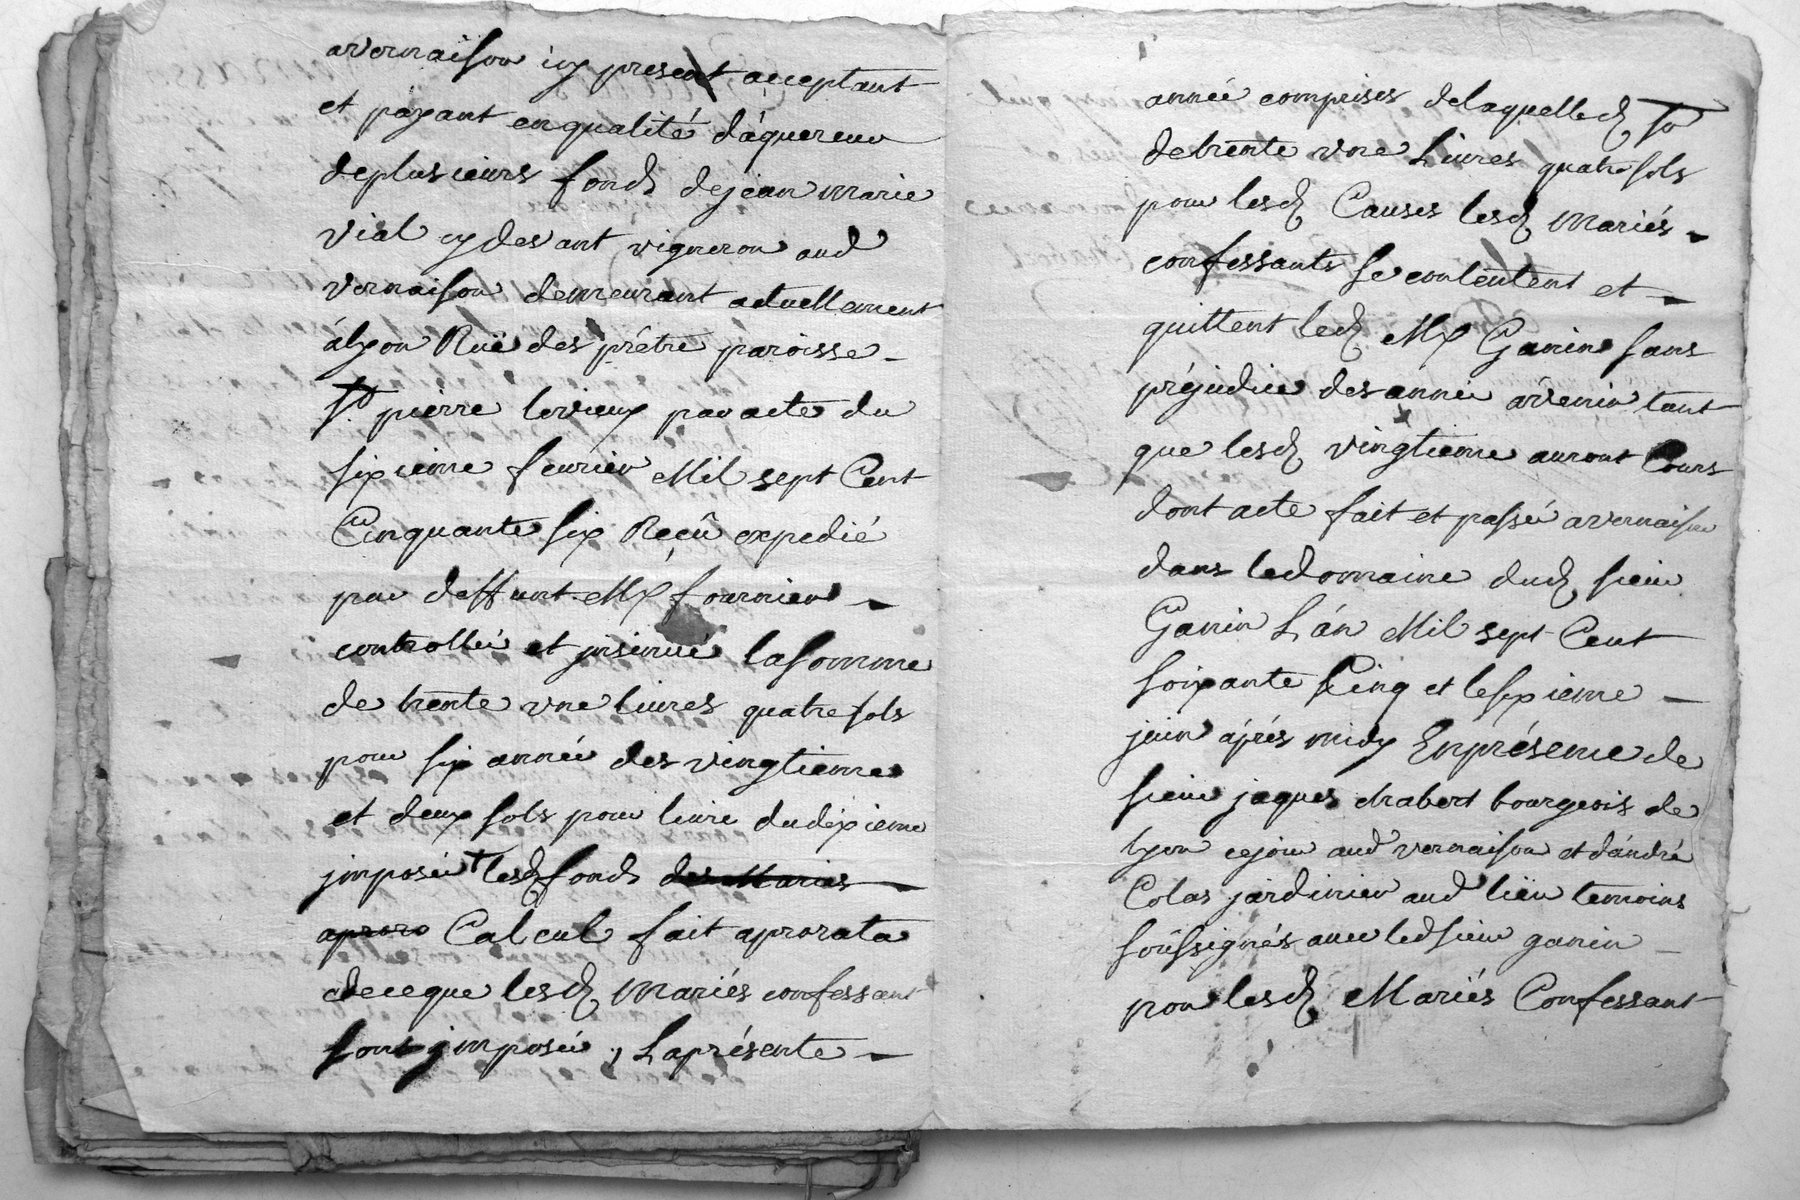 avernaison icy present acceptant
et payant enqualité dáquereur
deplusieurs fonds dejean marie
vial cydevant vigneron aud
vernaison demeurant actuellement
ályon Ruë des prétre paroisse
St pierre levieux par acte du
sixieme fevrier Mil sept Cent
Cinquante six Reçû expedié
par deffunt Me fournier
controllé et jnsinué lasomme
de trente une livres quatre sols
pour six année des vingtieme
et deux sols pour livre dudixieme
jmposéé + lesd fonds des Mariés
aproro Calcul fait aprorata
deceque lesd Mariés confessant
sont jmposéé, Laprésente
année comprises delaquelled So
detrente une Livres quatre sols
pour lesd Causes lesd Mariés
confessants se contentent et
quittent led Me Ganin sans
préjudice des année ávenir tant
que lesd vingtieme auront Cours
dont acte fait et passé avernaison
dans ledomaine dud sieur
Ganin L'án Mil sept Cent
soixante Cinq et lesixieme
juin áprés midy Enprésence de
sieur jaques chabert bourgeois de
lyon cejour aud vernaison et dándré
Colas jardinier aud liëu temoins
soûssignés avec led sieur ganin
pour lesd Mariés Confessant